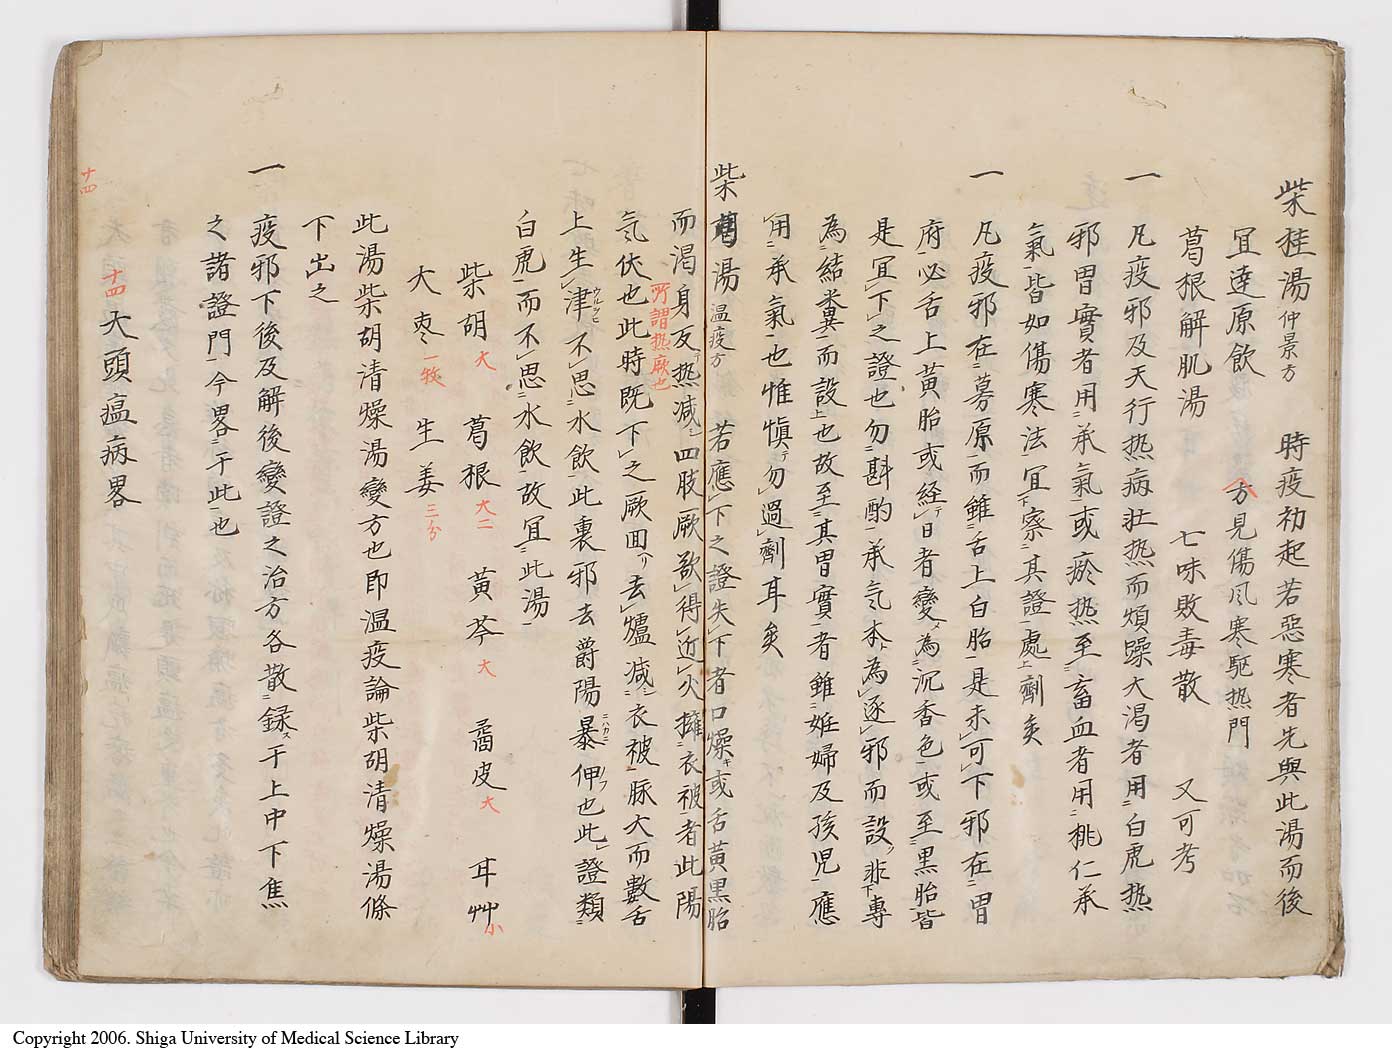 柴桂湯 仲景方 時疫初起若惡寒者先與此湯而後
冝達原飲 方見傷風寒駆热門
葛根解肌湯 七味敗毒散 又可考
一 凡疫邪及天行热病壮热而煩躁大渇者用白虎热
邪胃實者用承氣或瘀热至畜血者用桃仁承
氣皆如傷寒法冝察其證處劑矣
一 凡疫邪在募原而雖舌上白胎是未可下邪在胃
府必舌上黄胎或経日者變為沉香色或至黒胎皆
是冝下之證也勿斟酌承気本為逐邪而設非專
為結糞而設也故至其胃實者雖姙婦及孩児應
用承氣也惟慎勿過劑耳矣
柴葛湯 温疫方 若應下之證失下者口燥或舌黄黒胎
而渇身反热减四肢厥欲得近火擁衣被者此陽
所謂热厥也
気伏也此時既下之厥囬去爐减衣被脉大而數舌
上生津不思水飲此裏邪去爵陽暴伸也此證類
白虎而不思水飲故冝此湯
柴胡 大 葛根 大二 黄芩 大 畨皮 大 耳艸 小
大枣 一枚 生姜 三分
此湯柴胡清燥湯變方也即温疫論柴胡清燥湯條
下出之
一 疫邪下後及解後變證之治方各散録于上中下焦
之諸證門今畧于此也
十四 大頭瘟病畧
十四